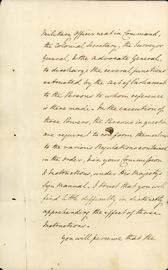 Military Officer next in Command,
the Colonial Secretary, the Surveyor
General, & the Advocate General,
to discharge the several functions
entrusted by the Act of Parliament
to the Persons to whom reference
is there made. In the execution of
these Powers, the Persons in question
are required to conform themselves
to the various Regulations contained
in the order, & in your Commission
& Instructions, under His Majesty's
Sign Manual. I trust that you will
find little difficulty in distinctly
apprehending the effect of those
Instructions.
You will perceive that the